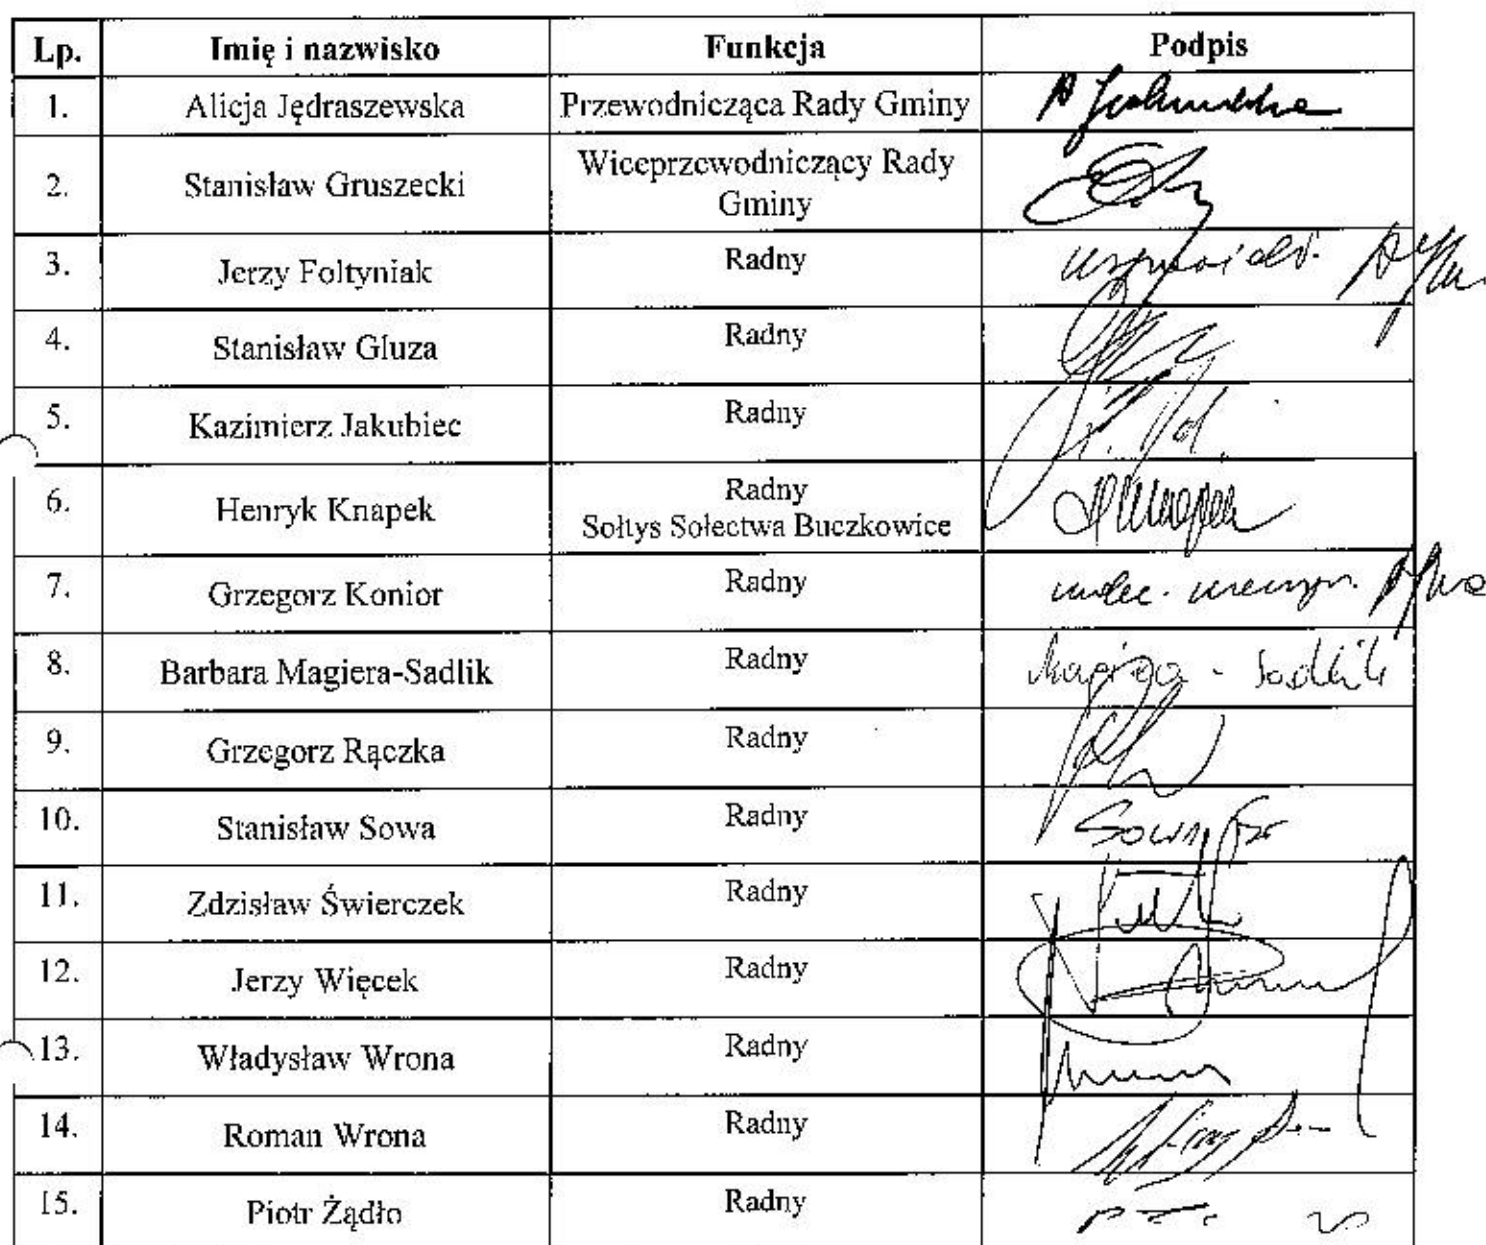 Lp. Imię i nazwisko Funkcja Podpis
1. Alicja Jędraszewska Przewodnicząca Rady Gminy
2. Stanisław Gruszecki Wiceprzewodniczący Rady
Gminy
3. Jerzy Foltyniak Radny
4. Stanisław Gluza Radny
5. Kazimierz Jakubiec Radny
6. Henryk Knapek Radny
Sołtys Sołectwa Buczkowice
7. Grzegorz Konior Radny
8. Barbara Magiera-Sadlik Radny Magiera - Sadlik
9. Grzegorz Rączka Radny
10. Stanisław Sowa Radny Sowa
11. Zdzisław Świerczek Radny
12. Jerzy Więcek Radny
13. Władysław Wrona Radny
14. Roman Wrona Radny
15. Piotr Żądło Radny